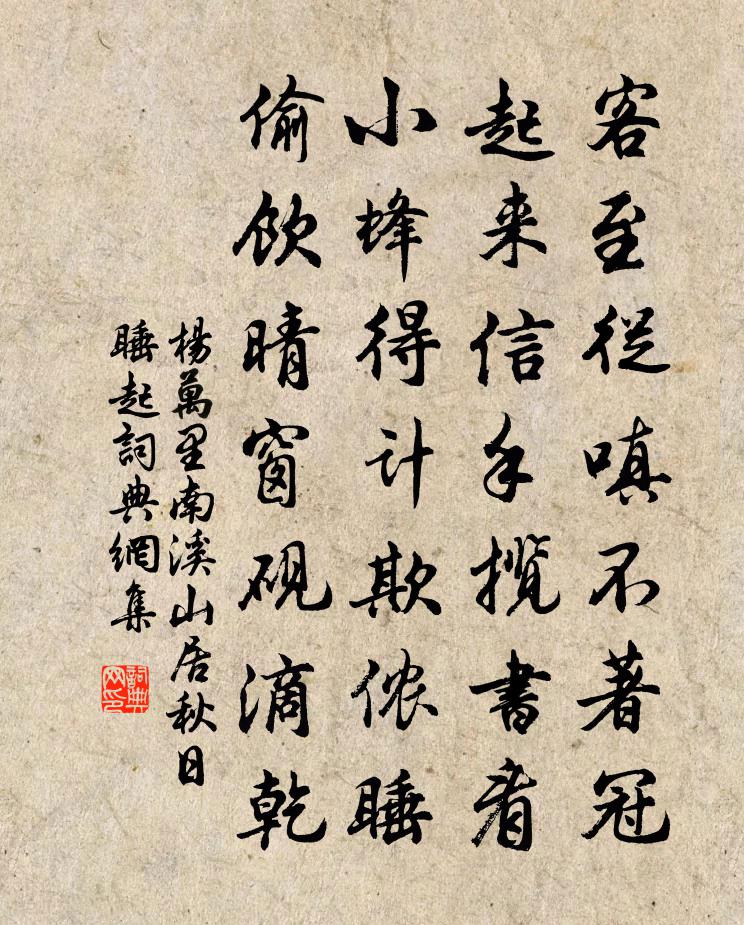 客至從嗔不著冠
起来信手揽書看
小蜂得计欺侬睡
偷飲晴窗砚滴乾
楊萬里南溪山居秋日
睡起詞典網集
詞典网印